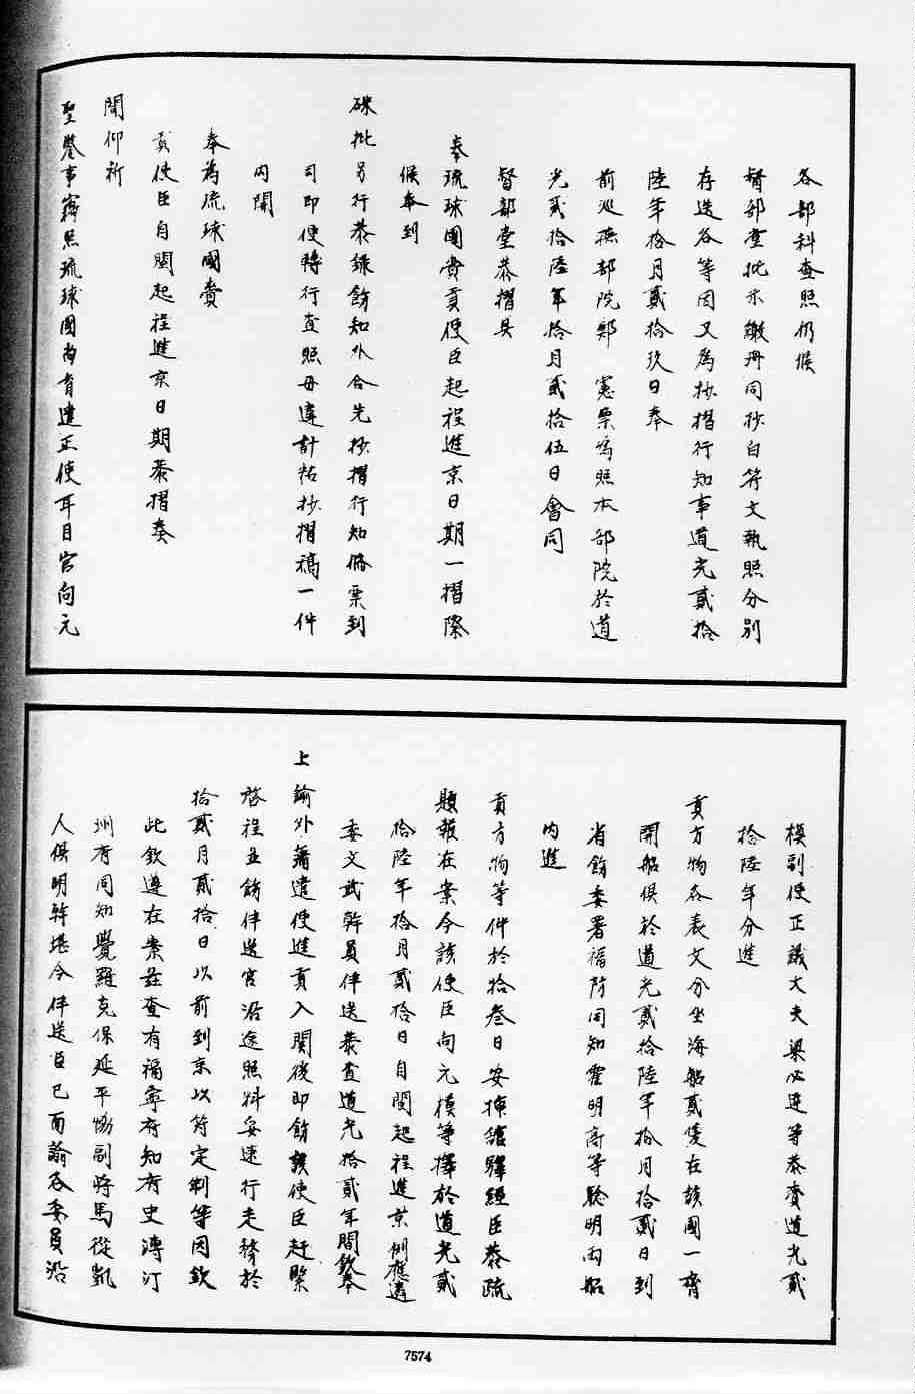 各部科查照仍候
督部堂批示繳冊同抄白符文執照分別
存送各等因又為抄摺行知事道光貳拾
陸年拾月貳拾玖日奉
前巡撫部院鄭 憲票為照本部院於道
光貳拾陸年拾月貳拾伍日會同
督部堂恭摺具
奉琉球國賫貢使臣起程進京日期一摺除
候奉到
硃批另行恭錄飭知外合先抄摺行知備票到
司即便轉行查照毋違計粘抄摺稿一件
內開
奉為琉球國賫
貢使臣自閩起程進京日期恭摺奏
聞仰祈
聖鑒事竊照琉球國向育遣正使耳目官向元
模副使正議大夫梁必達等恭賫道光貳
拾陸年分進
貢方物各表文分坐海船貳隻在該國一齊
開船俱於道光貳拾陸年拾月拾貳日到
省飭委署福防同知霍明高等驗明兩船
內進
貢方物等件於拾叁日安揷館驛經臣恭疏
題報在案今該使臣向元模等擇於道光貳
拾陸年拾月貳拾日自閩起程進京例應遴
委文武幹員伴送恭查道光拾貳年間欽奉
上諭外藩遣使進貢入關後即飭該使臣赶緊
啓程並飭伴送官沿途照料妥速行走務於
拾貳月貳拾日以前到京以符定制等因欽
此欽遵在案茲查有福寧府知府史溥汀
州府同知覺羅克保延平協副將馬從凱
人俱明幹堪令伴送臣已面諭各委員沿
7574